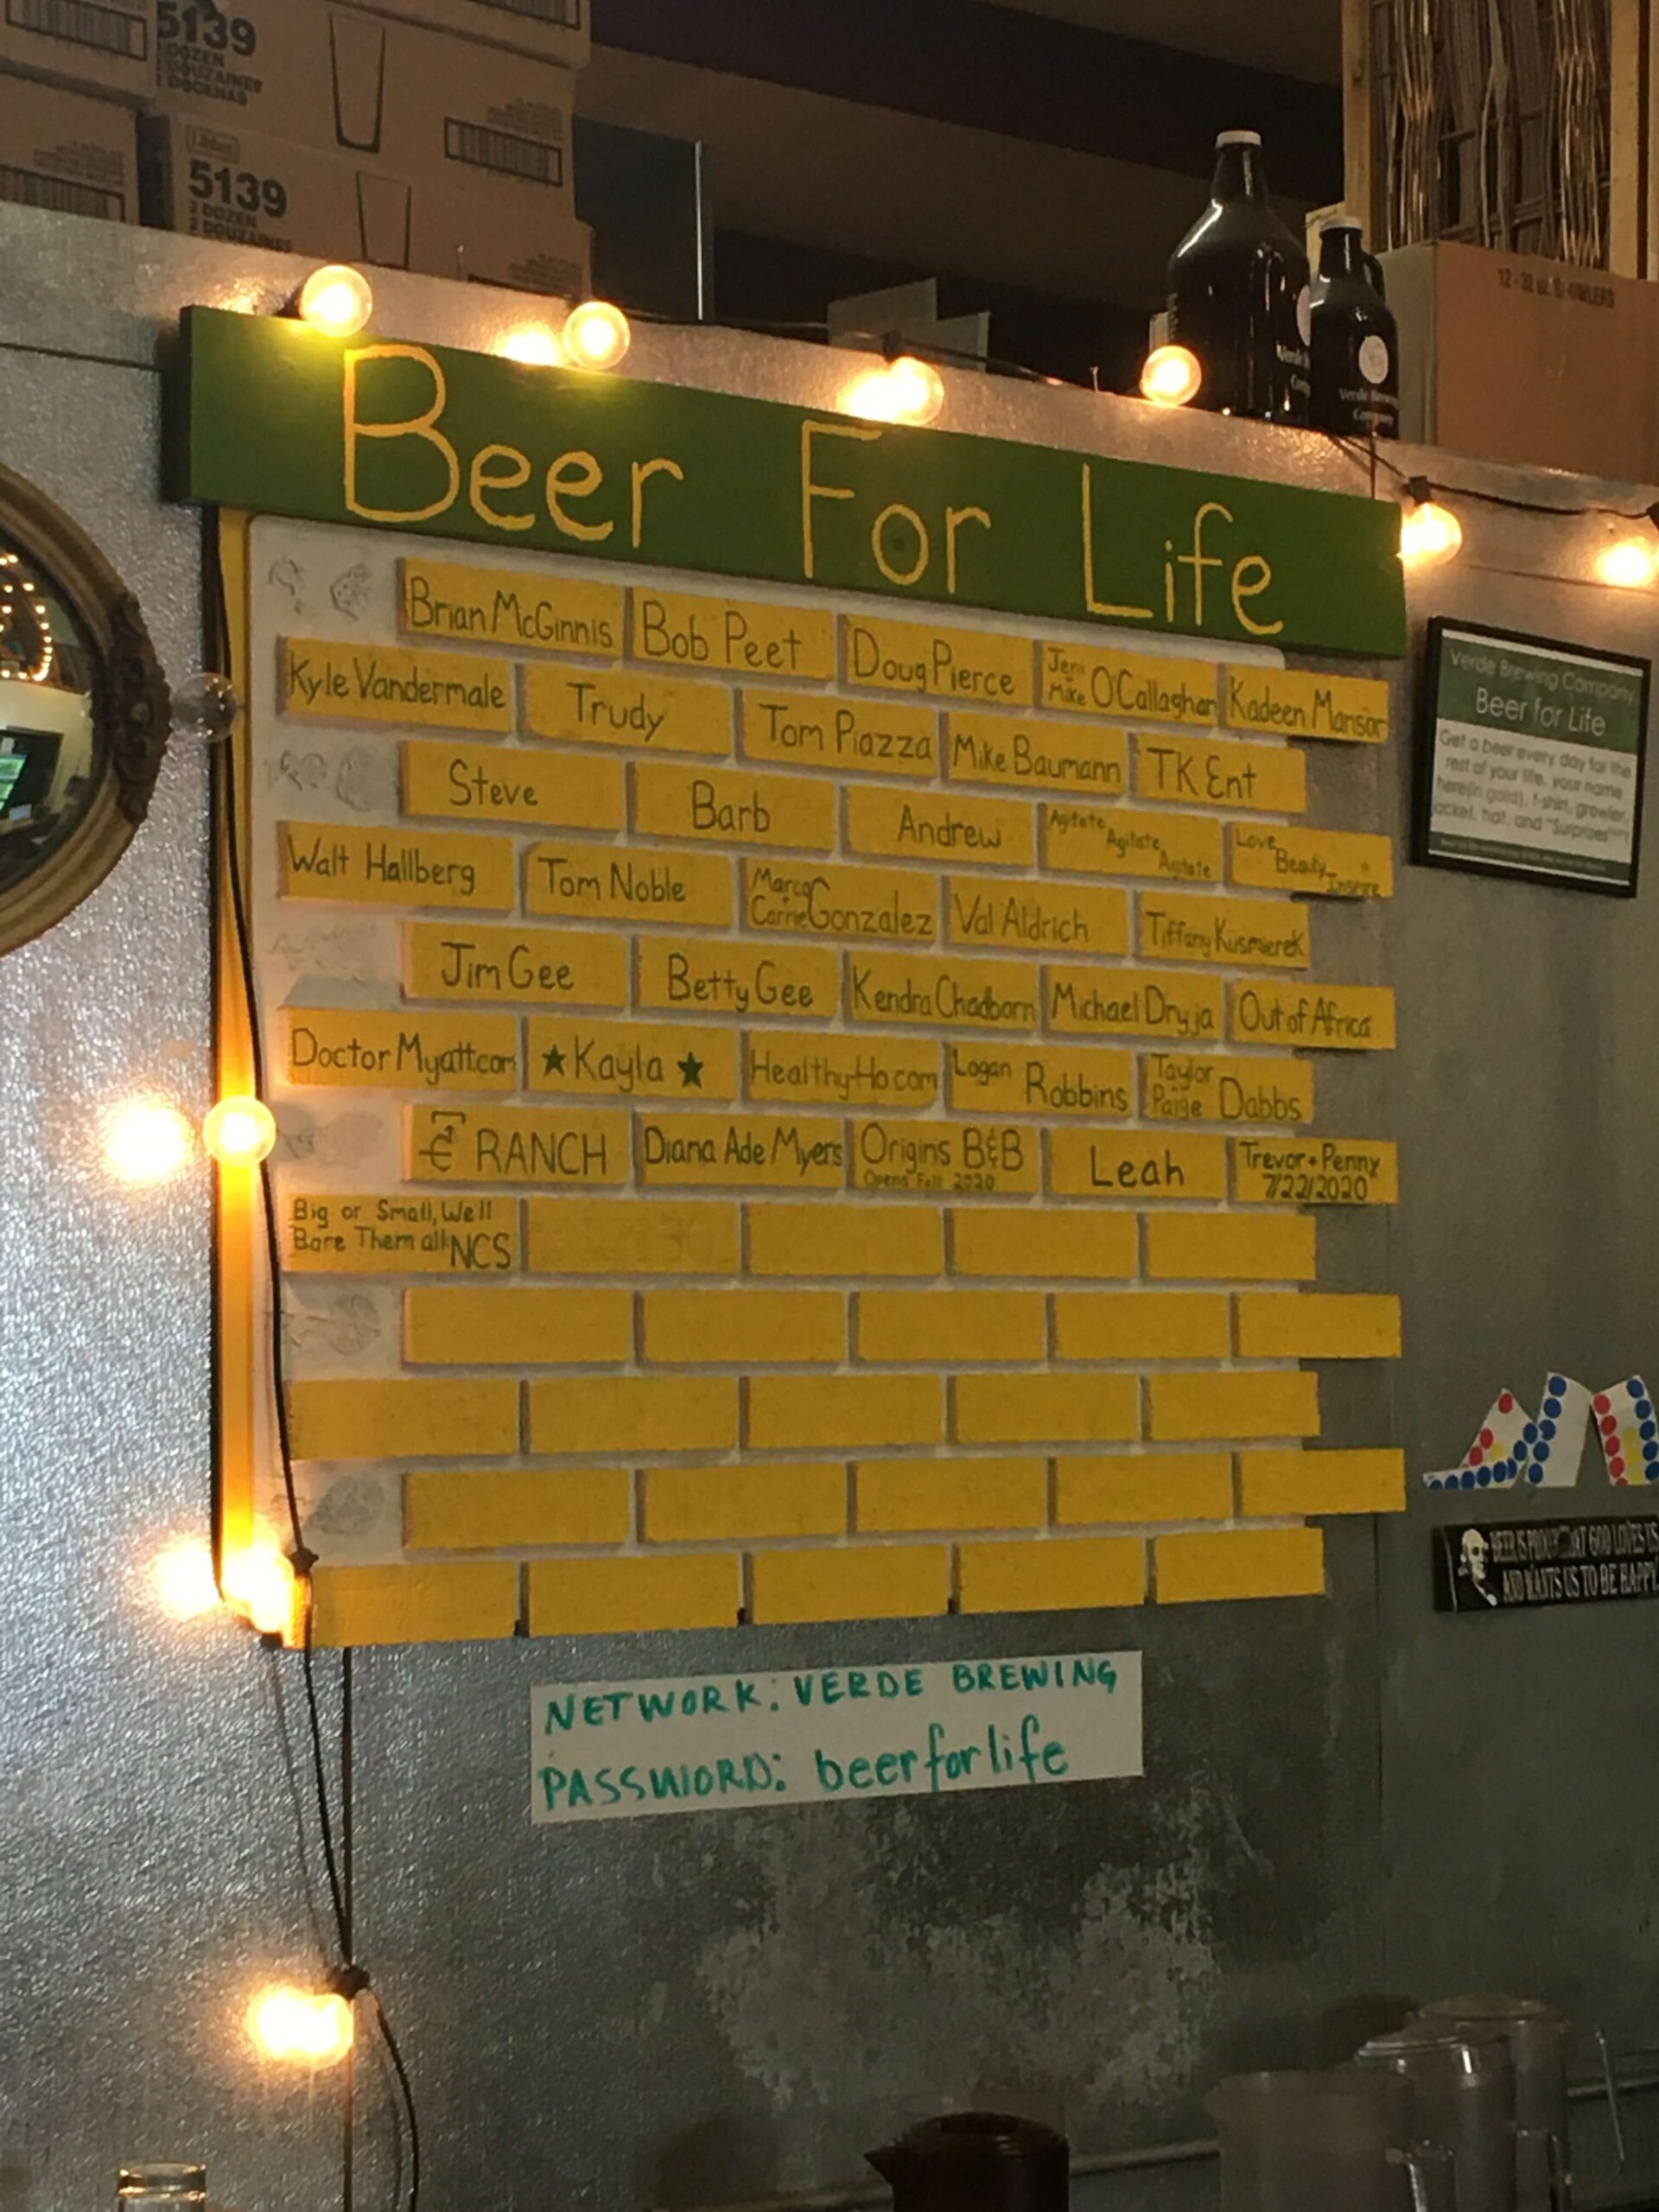 5139
DOZEN
DOUZAINES
DOCENAS
Libbey
5139
2 DOZEN
2 DOUZAINES
12 - 32 oz GROWLERS
Verde Brewing
Company
Beer For Life
Brian McGinnis
Bob Peet
Doug Pierce
Jeni
Mike O'Callaghan
Kadeen Mansor
Kyle Vandermale
Trudy
Tom Piazza
Mike Baumann
TK Ent
Steve
Barb
Andrew
Agitate
Agitate
Agitate
Love
Beauty
Inspire
Walt Hallberg
Tom Noble
Marco
Carrie Gonzalez
Val Aldrich
Tiffany Kusmierek
Jim Gee
Betty Gee
Kendra Chadborn
Michael Dryja
Out of Africa
Doctor Myatt.com
★Kayla★
HealthyHo.com
Logan Robbins
Taylor
Paige Dabbs
RANCH
Diana Ade Myers
Origins B&B
Opens Fall 2020
Leah
Trevor + Penny
7/22/2020
Big or Small, We'll
Bare Them all NCS
Verde Brewing Company
Beer for Life
Get a beer every day for the
rest of your life, your name
here(in gold), t-shirt, growler,
jacket, hat, and "Surprises"
BEER IS PROOF THAT GOD LOVES US
AND WANTS US TO BE HAPPY.
NETWORK: VERDE BREWING
PASSWORD: beerforlife